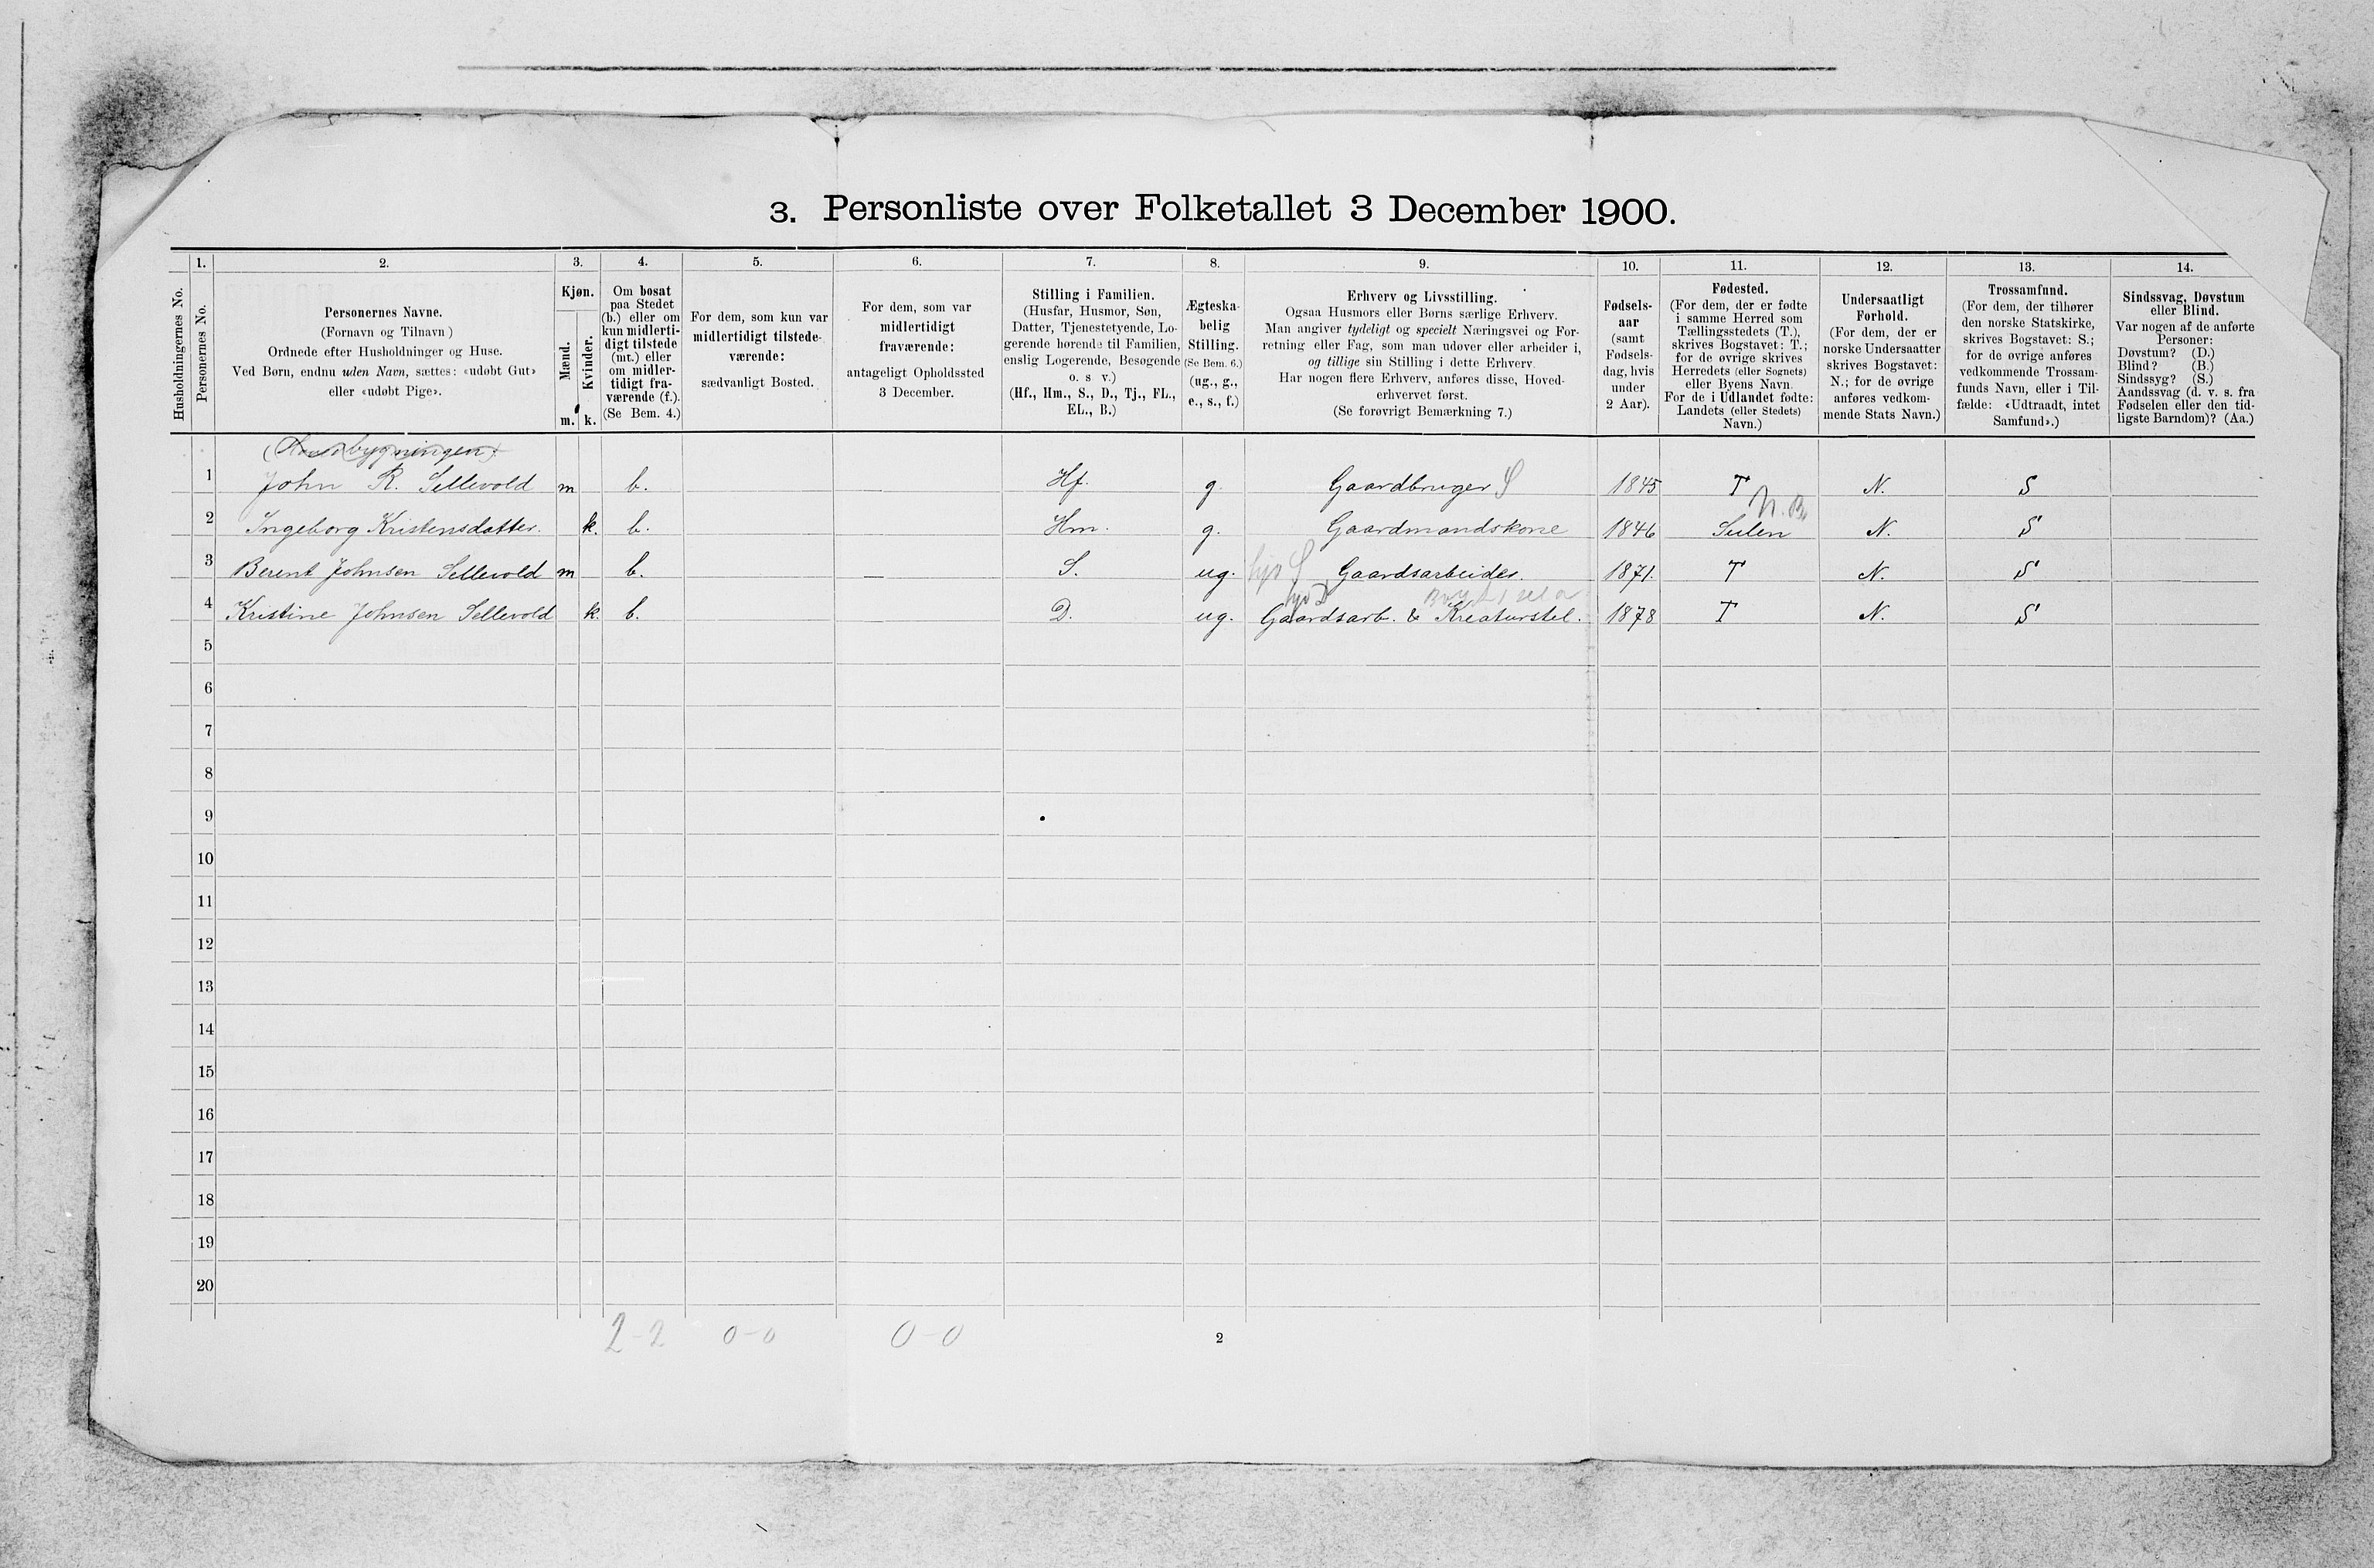 3. Personliste over Folketallet 3 December 1900.
1. 2. 3. 4. 5. 6. 7. 8. 9. 10. 11. 12. 13. 14.
Husholdningernes No.
Personernes No.
Personernes Navne.
(Fornavn og Tilnavn)
Ordnede efter Husholdninger og Huse.
Ved Børn, endnu uden Navn, sættes: «udøbt Gut»
eller «udøbt Pige».
Kjøn.
Mænd.
Kvinder.
m. k.
Om bosat
paa Stedet
(b.) eller om
kun midlerti-
digt tilstede
(mt.) eller
om midler-
tidigt fra-
værende (f.).
(Se Bem. 4.)
For dem, som kun var
midlertidigt tilstede-
værende:
sædvanligt Bosted.
For dem, som var
midlertidigt
fraværende:
antageligt Opholdssted
3 December.
Stilling i Familien.
(Husfar, Husmor, Søn,
Datter, Tjenestetyende, Lo-
gerende hørende til Familien,
enslig Logerende, Besøgende
o. s v.)
(Hf., Hm., S., D., Tj., FL.,
EL., B.)
Ægteska-
belig
Stilling.
(Se Bem. 6.)
(ug., g.,
e., s., f.)
Erhverv og Livsstilling.
Ogsaa Husmors eller Børns særlige Erhverv.
Man angiver tydeligt og specielt Næringsvei og For-
retning eller Fag, som man udøver eller arbeider i,
og tillige sin Stilling i dette Erhverv.
Har nogen flere Erhverv, anføres disse, Hoved-
erhvervet først.
(Se forøvrigt Bemærkning 7.)
Fødsels-
aar
(samt
Fødsels-
dag, hvis
under
2 Aar).
Fødested.
(For dem, der er fødte
i samme Herred som
Tællingsstedets (T.),
skrives Bogstavet: T.;
for de øvrige skrives
Herredets (eller Sognets)
eller Byens Navn.
For de i Udlandet fødte:
Landets (eller Stedets)
Navn.)
Undersaatligt
Forhold.
(For dem, der er
norske Undersaatter
skrives Bogstavet:
N.; for de øvrige
anføres vedkom-
mende Stats Navn.)
Trossamfund.
(For dem, der tilhører
den norske Statskirke,
skrives Bogstavet: S.;
for de øvrige anføres
vedkommende Trossam-
funds Navn, eller i Til-
fælde: «Udtraadt, intet
Samfund».)
Sindssvag, Døvstum
eller Blind.
Var nogen af de anførte
Personer:
Døvstum? (D.)
Blind? (B.)
Sindssyg? (S.)
Aandssvag (d. v. s. fra
Fødselen eller den tid-
ligste Barndom)? (Aa.)
1 John R. Sellevold m b. Hf. g. Gaardbruger S 1845 T N. S
N. B.
2 Ingeborg Kristensdatter. k. b. Hm. g. Gaardmandskone 1846 Sulen N. S
3 Berent Johnsen Sellevold m b. S. ug. hjs S Gaardsarbeider. 1871. T N. S
hjs D
4 Kristine Johnsen Sellevold k. b. D. ug. Gaardsarb. & Kreaturstel. 1878 T N. S
5
6
7
8
9
10
11
12
13
14
15
16
17
18
19
20
2-2 0-0 0-0 2